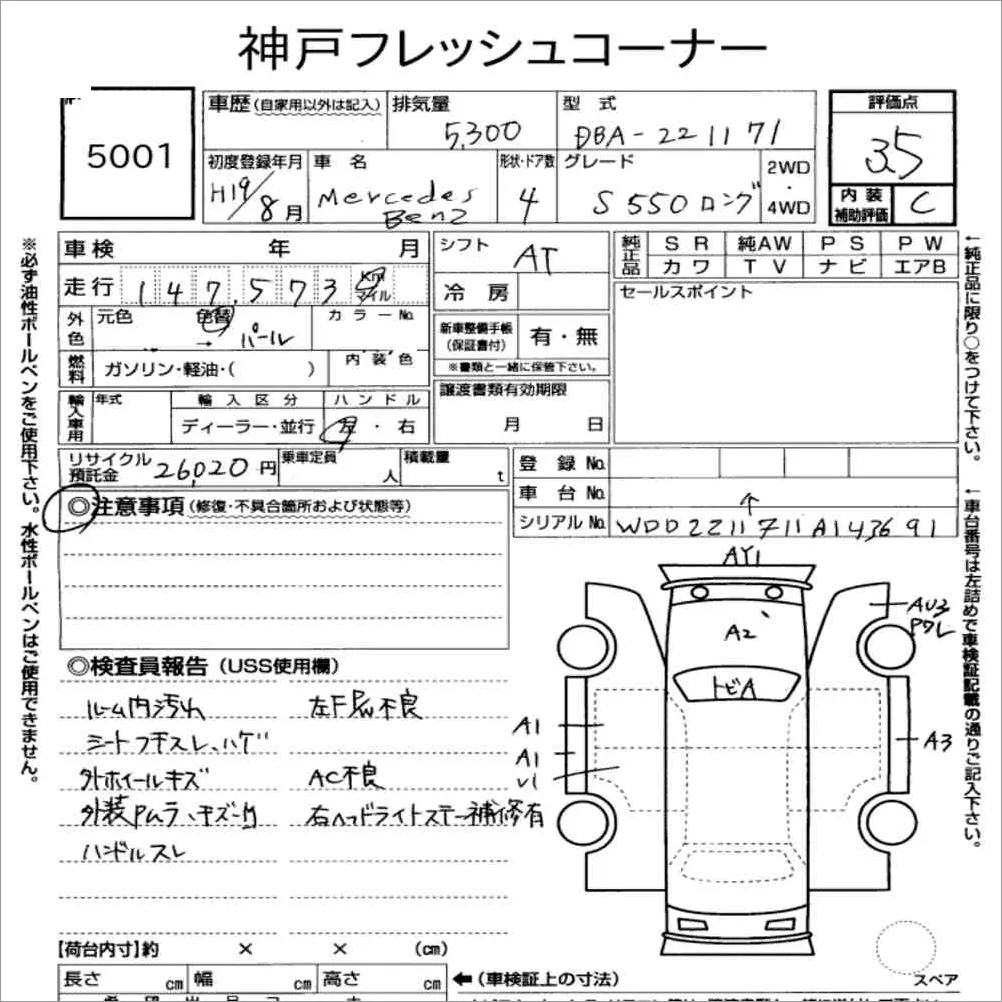 神戸フレッシュコーナー
5001
車歴(自家用以外は記入)
排気量
5,300
型 式
DBA-221171
評価点
3.5
初度登録年月
H19/8月
車 名
Mercedes
Benz
形状・ドア数
4
グレード
S550ロング
2WD
・
4WD
内 装
補助評価
C
※必ず油性ボールペンをご使用下さい。水性ボールペンはご使用できません。
車検 年 月
走行 147,573 Km
マイル
外色
元色
色替
→ パール
カラーNo.
燃料
ガソリン・軽油・( )
内装色
輸入車用
年式
輸入区分
ディーラー・並行
ハンドル
左・右
リサイクル
預託金 26,020 円
乗車定員
人
積載量
t
シフト
AT
冷 房
新車整備手帳
(保証書付)
有・無
※書類と一緒に保管下さい。
譲渡書類有効期限
月 日
純正品
SR 純AW PS PW
カワ TV ナビ エアB
セールスポイント
登 録 No.
車 台 No.
↑
シリアル No. WDD2211711A143691
←純正品に限り○をつけて下さい。
←車台番号は左詰めで車検証記載の通りご記入下さい。
◎注意事項(修復・不具合箇所および状態等)
◎検査員報告(USS使用欄)
ルーム内汚れ
シートフチスレ、ハゲ
外ホイールキズ
ハンドルスレ
左F PW不良
AC不良
右ヘッドライトステー補修有
AY1
A2
トビA
AU3
Pワレ
A1
A1
A3
【荷台内寸】約 × × (cm)
長さ cm 幅 cm 高さ cm
←(車検証上の寸法)
スペア